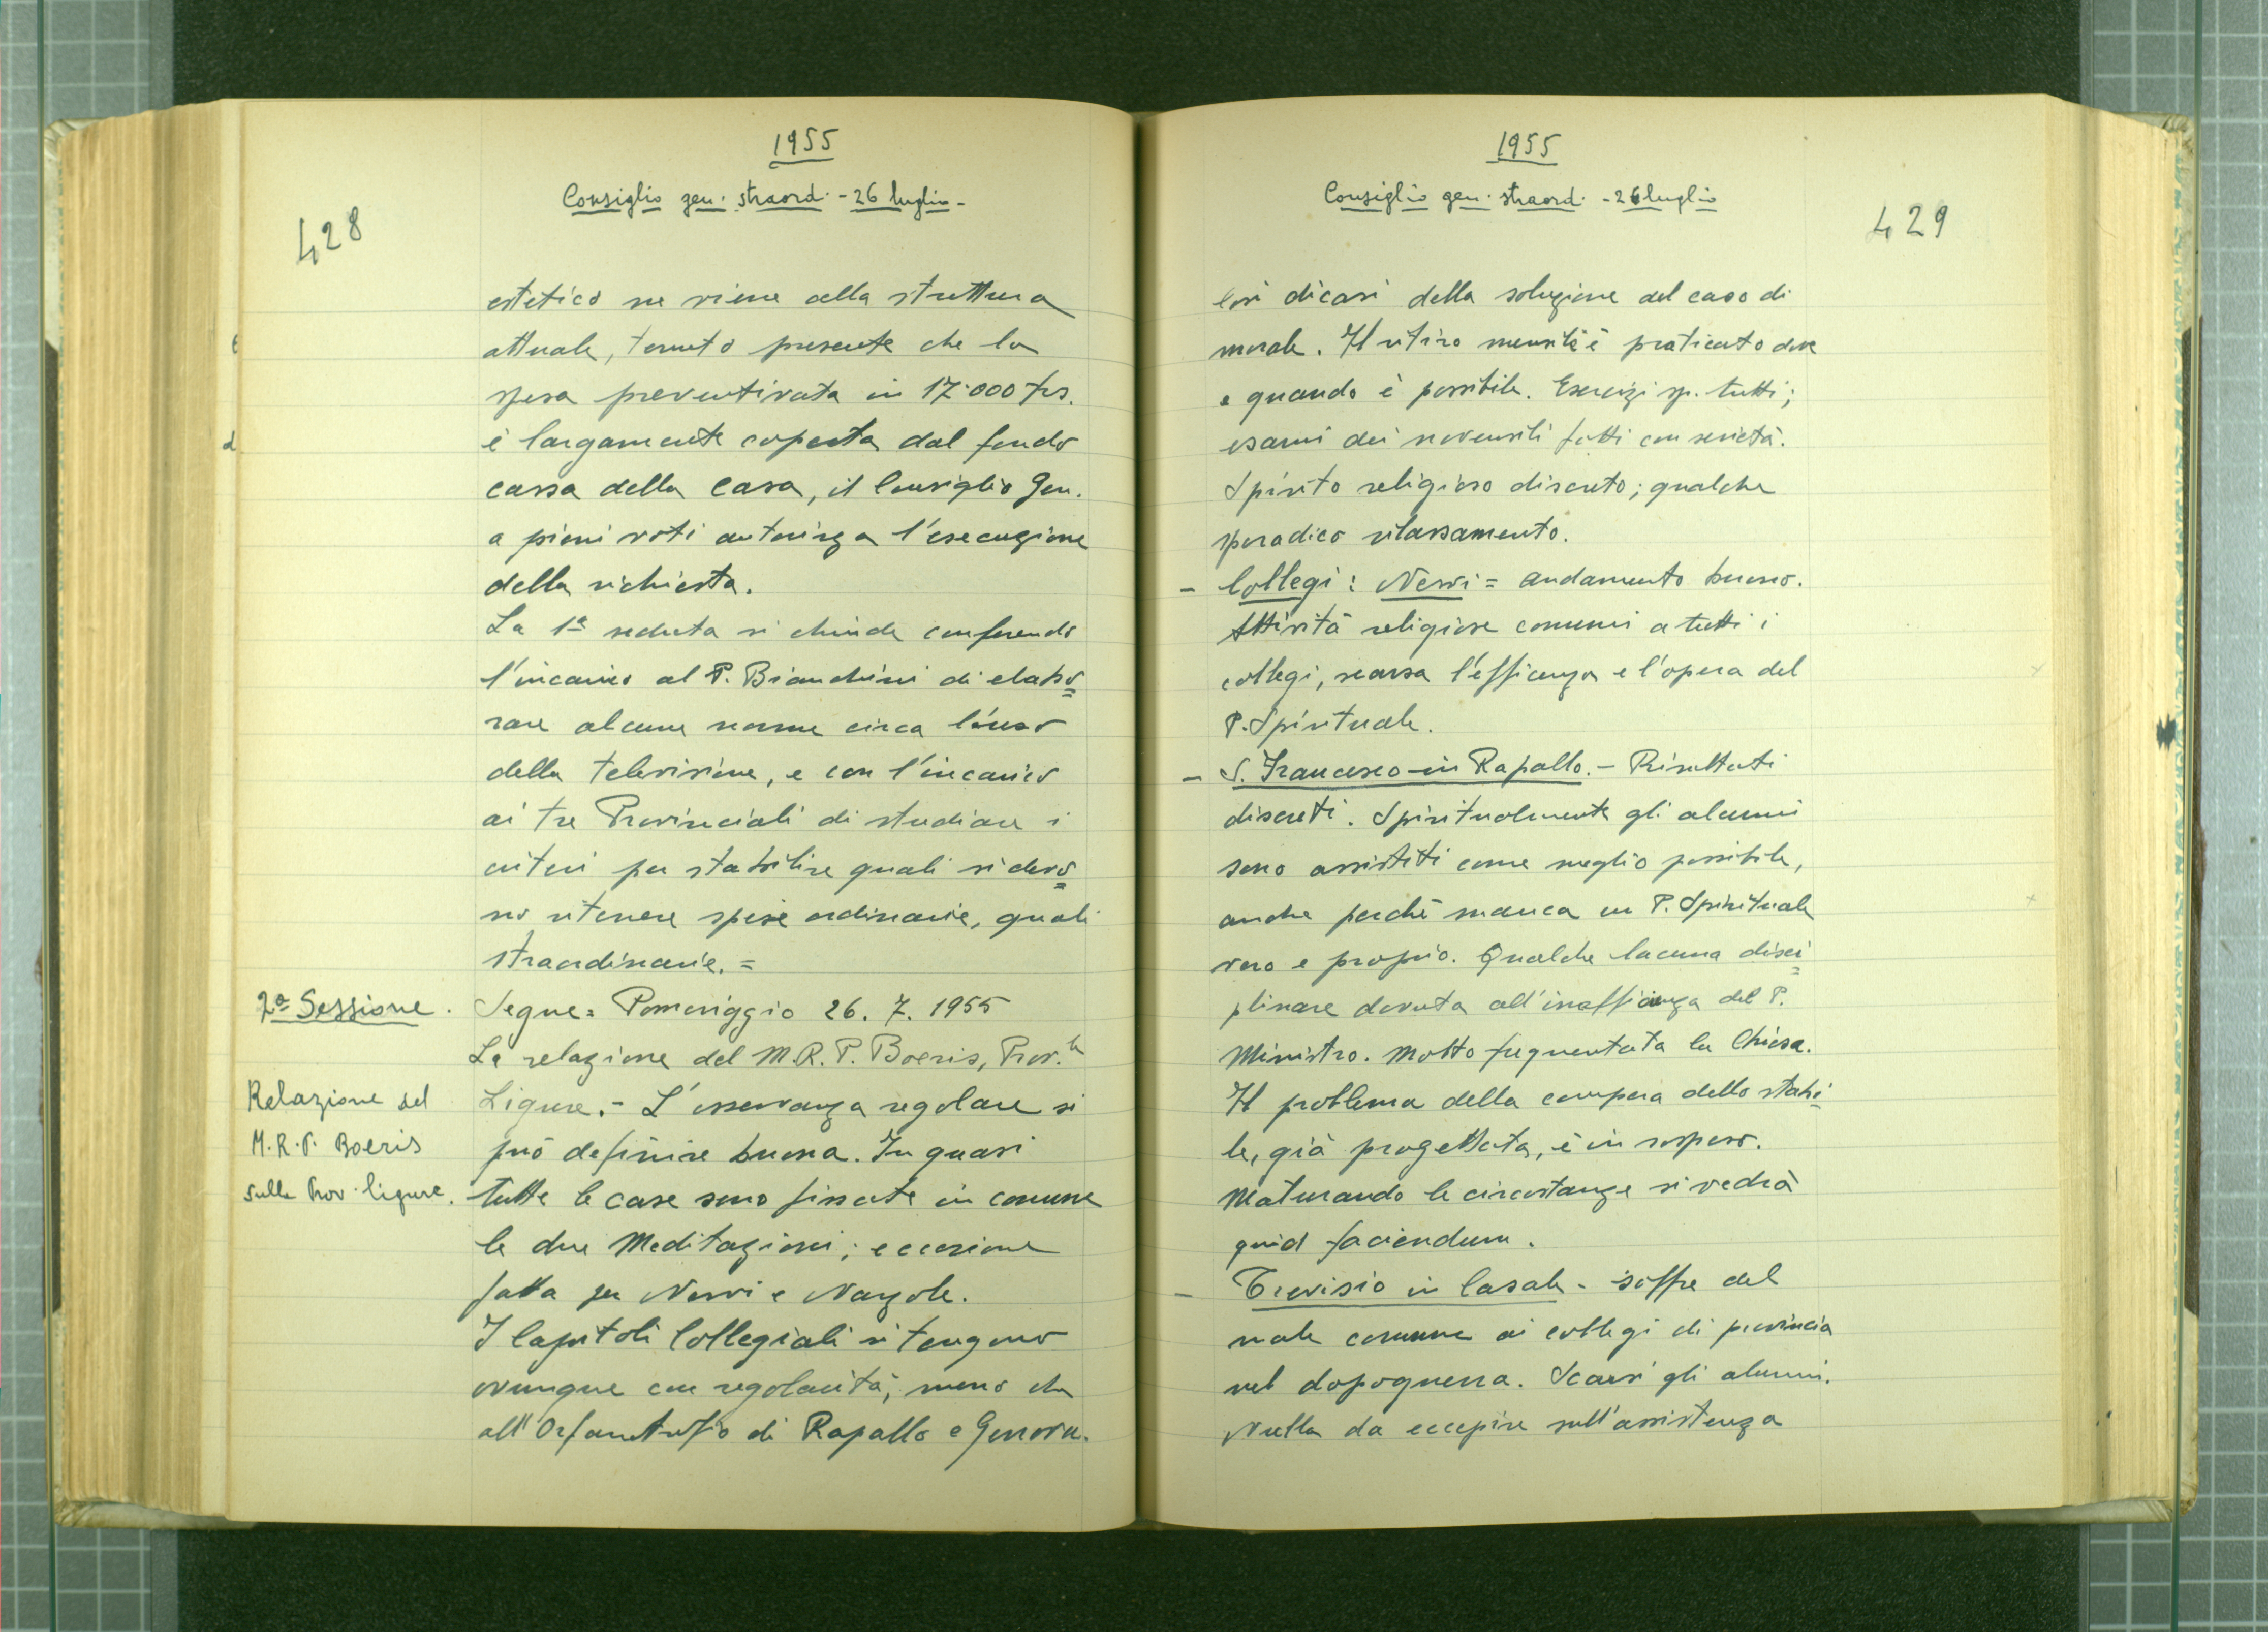 1955
Consiglio gen. straord. - 26 luglio -
428
estetico ne viene alla struttura
attuale, tenuto presente che la
spesa preventivata in 17.000 frs.
è largamente coperta dal fondo
cassa della casa, il Consiglio Gen.
a pieni voti autorizza l'esecuzione
della richiesta.
La 1ª seduta si chiude conferendo
l'incarico al P. Bianchini di elabo=
rare alcune norme circa l'uso
della televisione, e con l'incarico
ai tre Provinciali di studiare i
criteri per stabilire quali si devo=
no ritenere spese ordinarie, quali
straordinarie. =
2ª Sessione.
Segue = Pomeriggio 26. 7. 1955
La relazione del M.R.P. Boeris, Prov.le
Relazione del
M.R.P. Boeris
sulla Prov. ligure.
Ligure. - L'osservanza regolare si
può definire buona. In quasi
tutte le case sono fissate in comune
le due Meditazioni; eccezione
fatta per Nervi e Narzole.
I Capitoli Collegiali si tengono
ovunque con regolarità, meno che
all'Orfanotrofio di Rapallo e Genova.
1955
Consiglio gen. straord. - 26 luglio
429
Così dicasi della soluzione del caso di
morale. Il ritiro mensile è praticato dove
e quando è possibile. Esercizi sp. tutti;
esami dei novensili fatti con serietà.
Spirito religioso discreto; qualche
sporadico rilassamento.
- Collegi: Nervi = andamento buono.
Attività religiose comuni a tutti i
collegi, scarsa l'efficenza e l'opera del
P. Spirituale.
- S. Francesco in Rapallo. - Risultati
discreti. Spiritualmente gli alunni
sono assistiti come meglio possibile,
anche perchè manca un P. Spirituale
vero e proprio. Qualche lacuna disci=
plinare dovuta all'inefficienza del P.
Ministro. Molto frequentata la Chiesa.
Il problema della compera dello stabi=
le, già progettata, è in sospeso.
Maturando le circostanze si vedrà
quid faciendum.
- Trevisio in Casale - soffre del
male comune ai collegi di provincia
nel dopoguerra. Scarsi gli alunni.
Nulla da eccepire sull'assistenza